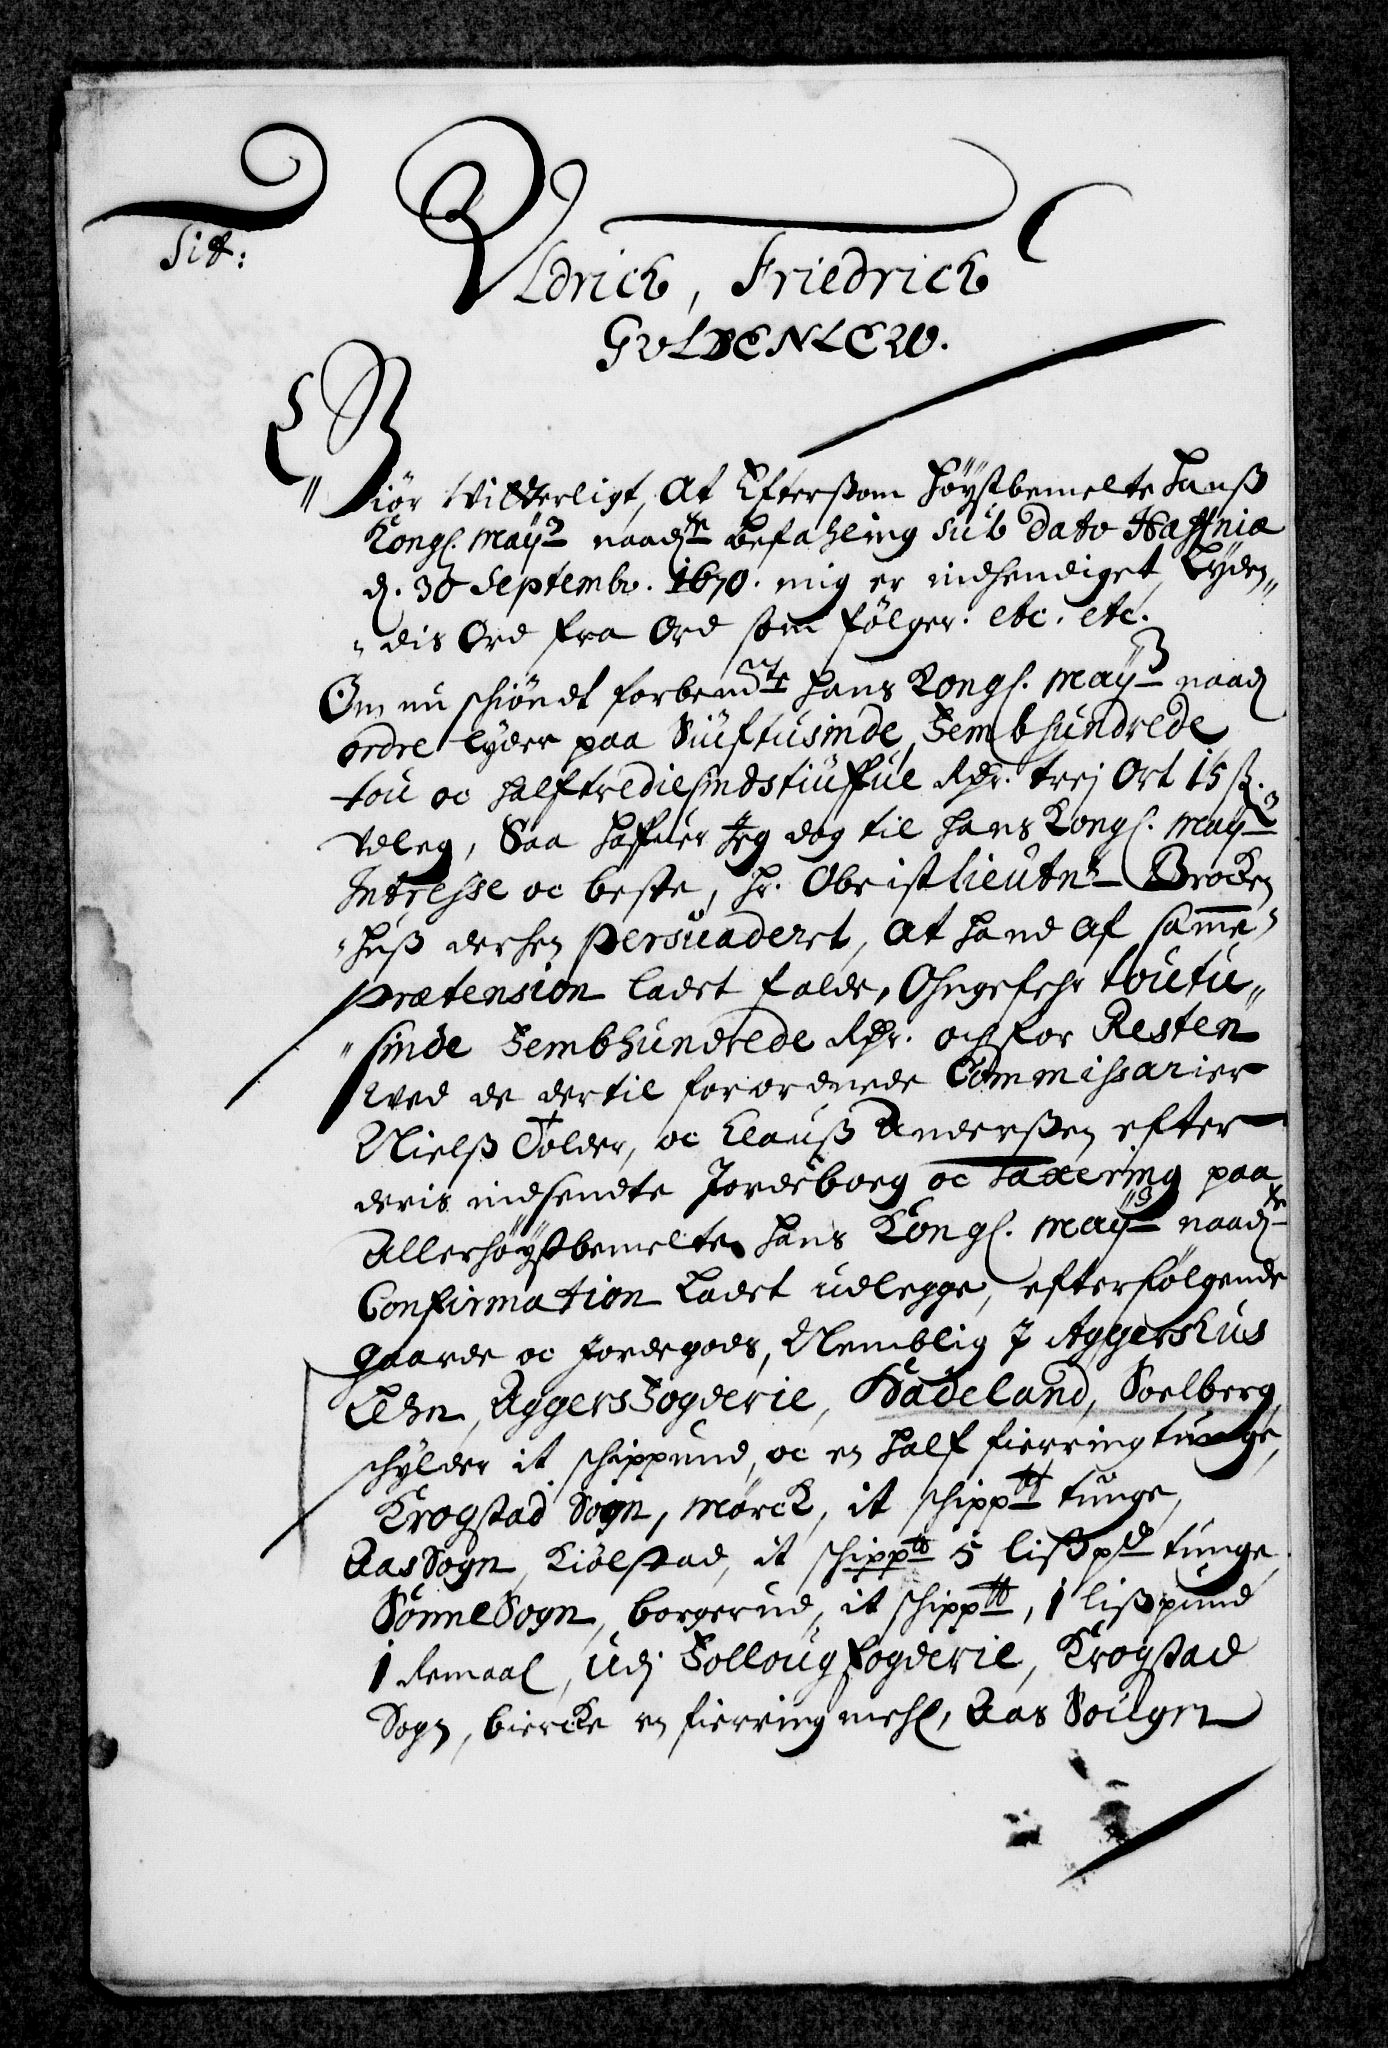 Tit:
Vldrich, Friedrich
GVLDENLEW.
Giör Vitterligt, At Efterßom Höystbemelte Hanß
Kongl. May:ts naadste befahling sub Dato Haffnia
d. 30 Septembr. 1670. mig er indhendiget, Lyden„
„dis Ord fra Ord som følger. etc. etc.
Om nu schiöndt forbemdte Hans Kongl. May:ts naad:
ordre lyder paa Siuftusinde, Fembhundrede
tou oc halftrediesindstiuffue Rdr. trej Ort 15 ß.
Vdleg, Saa Haffuer Jeg dog til Hans Kongl. May:ts
Interesse oc beste, Hr. Obristlieutnt Brocken
„huß derhen persuaderet, At Hand af samme
prætension ladet falde, Ohngefehr toutu„
„sinde Fembhundrede Rdr. och for Resten
Ved de dertil forordnede Commissarier
Nielß Tolder, oc Clauß Anderßen efter
deris indsendte Jordebog oc taxering paa
Allerhöystbemelte Hans Kongl. May:ts naadste
Confirmation Ladet udlegge, efterfølgende
Gaarde oc Jordegods, Nemblig J Aggershus
Lehn, Aggers Fogderie, Hadeland, Soelberg,
schylder it schippund, oc en half fierring tunge,
Krogstad Sogn, Mørck, it schippd tunge,
Aas Sogn, Kiølstad, it schippd 5 lißpd tunge,
Sønne Sogn, borgerud, it schippd, 1 lißpund
1 Remaal, Udj Follougfogderie, Krogstad
Sogn, biercke en fierring mehl, Aas Sougn